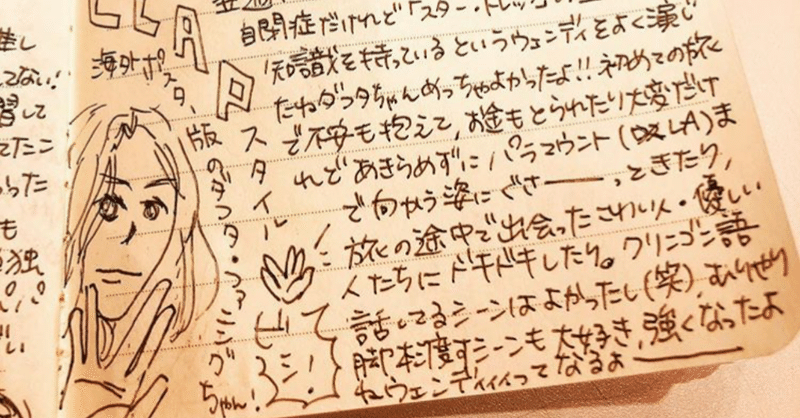 してない!
習して
てたこ
った
も
孤独
CLAP
スタイル
海外ポスター
版のダコタ・ファニングちゃん!
ビシ!
自閉症だけれど「スター・トレック」の
知識を持っているというウェンディをよく演じ
たねダコタちゃんめっちゃよかったよ!!初めての旅
で不安も抱えて、お金もとられたり大変だけ
れどあきらめずにパラマウント(LA)ま
で向かう姿にぐさーーっときたり、
旅の途中で出会ったこわい人・優しい
人たちにドキドキしたり。クリンゴン語
話してるシーンはよかったし(笑)、むりやり
脚本渡すシーンも大好き、強くなったよ
ねウェンディィィってなるよーーー